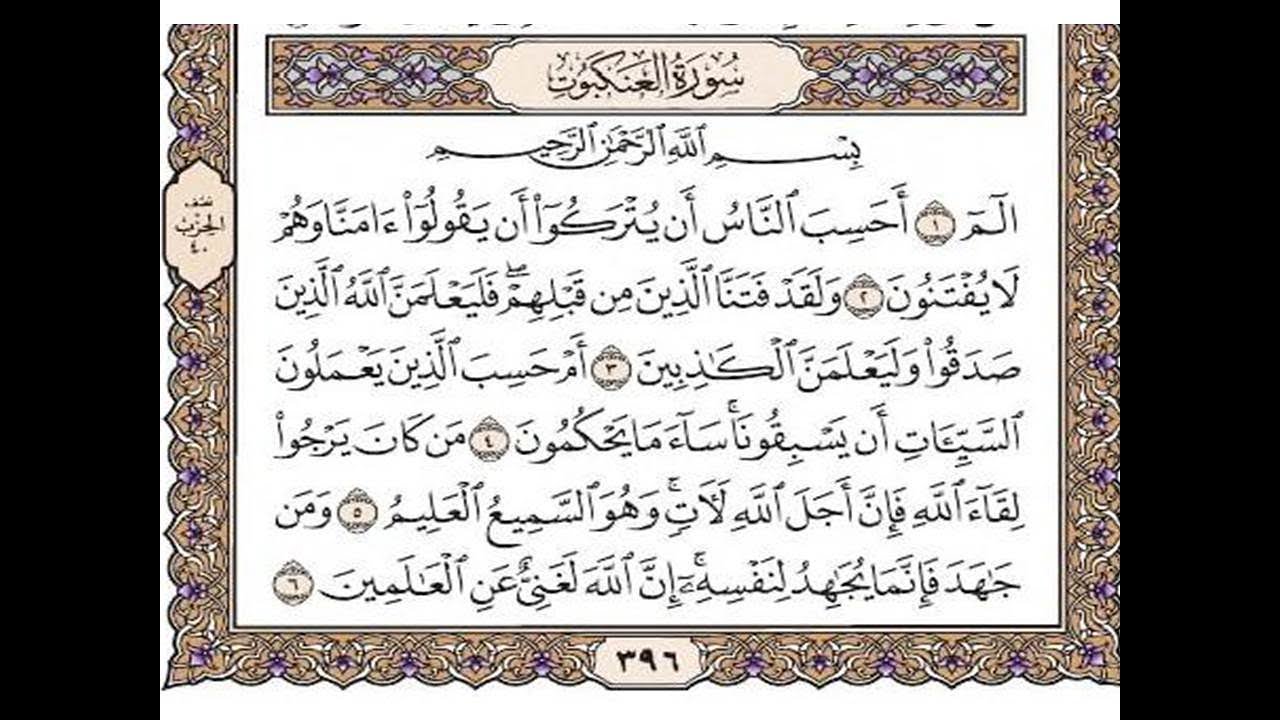 سُورَةُ العَنكَبُوتِ
بِسْمِ ٱللَّهِ ٱلرَّحْمَٰنِ ٱلرَّحِيمِ
نصف
الحزب
٤٠
الٓمٓ ١ أَحَسِبَ ٱلنَّاسُ أَن يُتْرَكُوٓا۟ أَن يَقُولُوٓا۟ ءَامَنَّا وَهُمْ
لَا يُفْتَنُونَ ٢ وَلَقَدْ فَتَنَّا ٱلَّذِينَ مِن قَبْلِهِمْ ۖ فَلَيَعْلَمَنَّ ٱللَّهُ ٱلَّذِينَ
صَدَقُوا۟ وَلَيَعْلَمَنَّ ٱلْكَٰذِبِينَ ٣ أَمْ حَسِبَ ٱلَّذِينَ يَعْمَلُونَ
ٱلسَّيِّـَٔاتِ أَن يَسْبِقُونَا ۚ سَآءَ مَا يَحْكُمُونَ ٤ مَن كَانَ يَرْجُوا۟
لِقَآءَ ٱللَّهِ فَإِنَّ أَجَلَ ٱللَّهِ لَـَٔاتٍ ۚ وَهُوَ ٱلسَّمِيعُ ٱلْعَلِيمُ ٥ وَمَن
جَٰهَدَ فَإِنَّمَا يُجَٰهِدُ لِنَفْسِهِۦٓ ۚ إِنَّ ٱللَّهَ لَغَنِىٌّ عَنِ ٱلْعَٰلَمِينَ ٦
٣٩٦